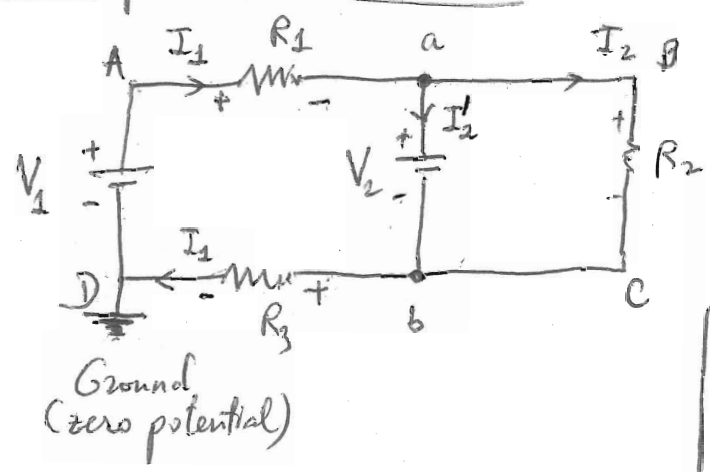 A I₁ R1 a I₂ B
+ -
I₂'
+ V₁ - + V₂ - + R₂ -
I₁
D - + C
R₃ b
Ground
(zero potential)